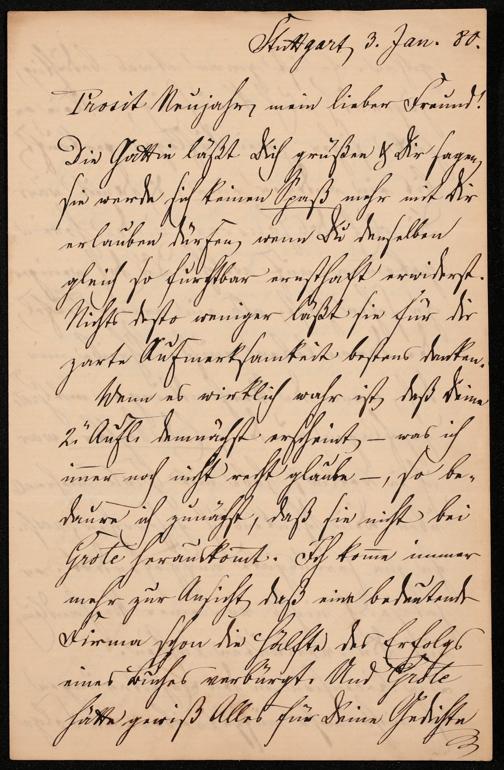 Stuttgart, 3. Jan. 80.
Prosit Neujahr, mein lieber Freund!
Die Gattin läßt Dich grüßen & Dir sagen,
sie werde sich keinen Spaß mehr mit Dir
erlauben dürfen, wenn Du denselben
gleich so furchtbar ernsthaft erwiderst.
Nichts desto weniger läßt sie für die
zarte Aufmerksamkeit bestens danken.
Wenn es wirklich wahr ist, daß Deine
2te Aufl. demnächst erscheint, – was ich
immer noch nicht recht glaube –, so be-
daure ich zunächst, daß sie nicht bei
Grote herauskommt. Ich komme immer
mehr zur Ansicht, daß eine bedeutende
Firma schon die Hälfte des Erfolgs
eines Buches verbürgt. Und Grote
hätte gewiß Alles für Deine Gedichte